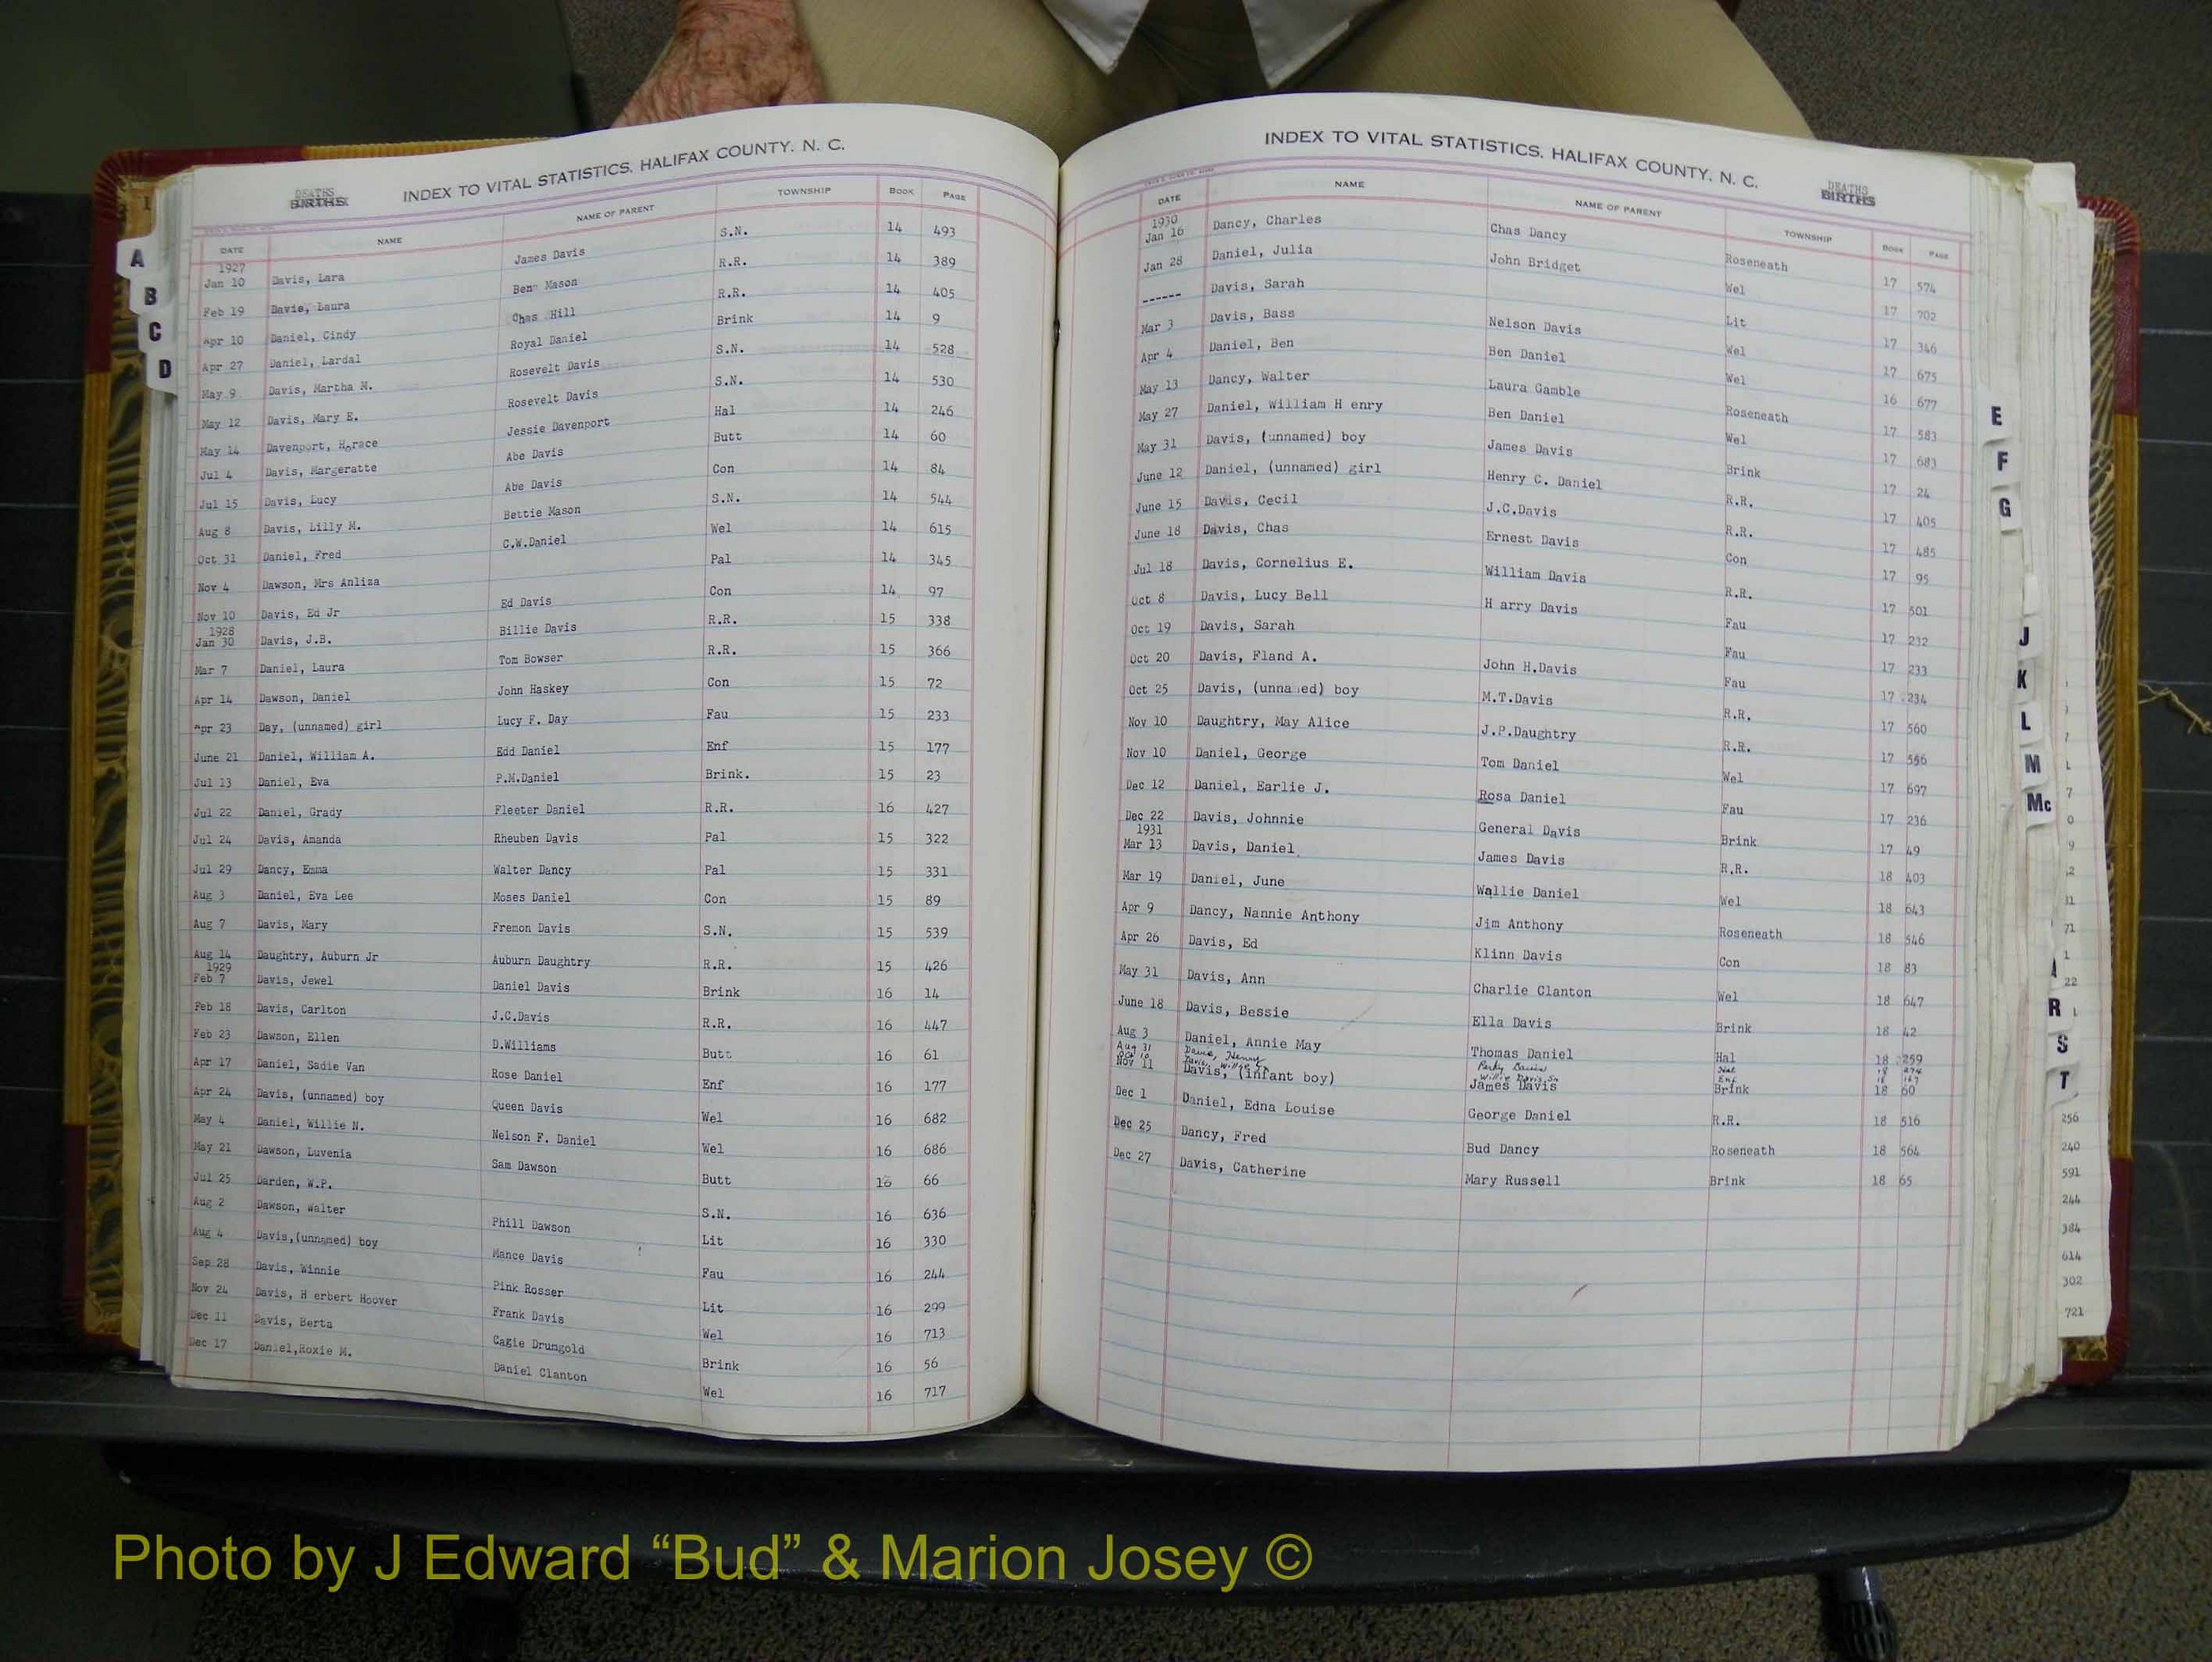 INDEX TO VITAL STATISTICS, HALIFAX COUNTY, N. C.
DEATHS
DATE NAME NAME OF PARENT TOWNSHIP BOOK PAGE
1927
Jan 10 Davis, Lara James Davis S.N. 14 493
Feb 19 Davis, Laura Benn Mason R.R. 14 389
Apr 10 Daniel, Cindy Chas Hill R.R. 14 405
Apr 27 Daniel, Lardal Royal Daniel Brink 14 9
May 9 Davis, Martha M. Rosevelt Davis S.N. 14 528
May 12 Davis, Mary E. Rosevelt Davis S.N. 14 530
May 14 Davenport, Horace Jessie Davenport Hal 14 246
Jul 4 Davis, Margeratte Abe Davis Butt 14 60
Jul 15 Davis, Lucy Abe Davis Con 14 84
Aug 8 Davis, Lilly M. Bettie Mason S.N. 14 544
Oct 31 Daniel, Fred C.W.Daniel Wel 14 615
Nov 4 Dawson, Mrs Anliza Pal 14 345
Nov 10 Davis, Ed Jr Ed Davis Con 14 97
1928
Jan 30 Davis, J.B. Billie Davis R.R. 15 338
Mar 7 Daniel, Laura Tom Bowser R.R. 15 366
Apr 14 Dawson, Daniel John Haskey Con 15 72
Apr 23 Day, (unnamed) girl Lucy F. Day Fau 15 233
June 21 Daniel, William A. Edd Daniel Enf 15 177
Jul 13 Daniel, Eva P.M.Daniel Brink. 15 23
Jul 22 Daniel, Grady Fleeter Daniel R.R. 16 427
Jul 24 Davis, Amanda Rheuben Davis Pal 15 322
Jul 29 Dancy, Emma Walter Dancy Pal 15 331
Aug 3 Daniel, Eva Lee Moses Daniel Con 15 89
Aug 7 Davis, Mary Fremon Davis S.N. 15 539
Aug 14 Daughtry, Auburn Jr Auburn Daughtry R.R. 15 426
1929
Feb 7 Davis, Jewel Daniel Davis Brink 16 14
Feb 18 Davis, Carlton J.C.Davis R.R. 16 447
Feb 23 Dawson, Ellen D.Williams Butt 16 61
Apr 17 Daniel, Sadie Van Rose Daniel Enf 16 177
Apr 24 Davis, (unnamed) boy Queen Davis Wel 16 682
May 4 Daniel, Willie N. Nelson F. Daniel Wel 16 686
May 21 Dawson, Luvenia Sam Dawson Butt 16 66
Jul 25 Darden, W.P. S.N. 16 636
Aug 2 Dawson, Walter Phill Dawson Lit 16 330
Aug 4 Davis,(unnamed) boy Mance Davis Fau 16 244
Sep 28 Davis, Winnie Pink Rosser Lit 16 299
Nov 24 Davis, H erbert Hoover Frank Davis Wel 16 713
Dec 11 Davis, Berta Cagie Drumgold Brink 16 56
Dec 17 Daniel,Roxie M. Daniel Clanton Wel 16 717
INDEX TO VITAL STATISTICS, HALIFAX COUNTY, N. C.
DEATHS
DATE NAME NAME OF PARENT TOWNSHIP BOOK PAGE
1930
Jan 16 Dancy, Charles Chas Dancy Roseneath 17 574
Jan 28 Daniel, Julia John Bridget Wel 17 702
------ Davis, Sarah Lit 17 346
Mar 3 Davis, Bass Nelson Davis Wel 17 675
Apr 4 Daniel, Ben Ben Daniel Wel 16 677
May 13 Dancy, Walter Laura Gamble Roseneath 17 583
May 27 Daniel, William H enry Ben Daniel Wel 17 683
May 31 Davis, (unnamed) boy James Davis Brink 17 24
June 12 Daniel, (unnamed) girl Henry C. Daniel R.R. 17 405
June 15 Davis, Cecil J.C.Davis R.R. 17 485
June 18 Davis, Chas Ernest Davis Con 17 95
Jul 18 Davis, Cornelius E. William Davis R.R. 17 501
Oct 8 Davis, Lucy Bell H arry Davis Fau 17 232
Oct 19 Davis, Sarah Fau 17 233
Oct 20 Davis, Fland A. John H.Davis Fau 17 234
Oct 25 Davis, (unna ed) boy M.T.Davis R.R. 17 560
Nov 10 Daughtry, May Alice J.P.Daughtry R.R. 17 556
Nov 10 Daniel, George Tom Daniel Wel 17 697
Dec 12 Daniel, Earlie J. Rosa Daniel Fau 17 236
Dec 22 Davis, Johnnie General Davis Brink 17 49
1931
Mar 13 Davis, Daniel James Davis R.R. 18 403
Mar 19 Daniel, June Wallie Daniel Wel 18 643
Apr 9 Dancy, Nannie Anthony Jim Anthony Roseneath 18 546
Apr 26 Davis, Ed Klinn Davis Con 18 83
May 31 Davis, Ann Charlie Clanton Wel 18 647
June 18 Davis, Bessie Ella Davis Brink 18 42
Aug 3 Daniel, Annie May Thomas Daniel Hal 18 259
Aug 31 Davis, Henry Perky Davis Hal 18 274
Oct 10 Davis, Willie Jr Willie Davis, Sr Enf 18 167
Nov 11 Davis, (infant boy) James Davis Brink 18 60
Dec 1 Daniel, Edna Louise George Daniel R.R. 18 516
Dec 25 Dancy, Fred Bud Dancy Roseneath 18 564
Dec 27 Davis, Catherine Mary Russell Brink 18 65
A
B
C
D
E
F
G
J
K
L
M
Mc
R
S
T
256
240
591
244
384
614
302
721
Photo by J Edward “Bud” & Marion Josey ©